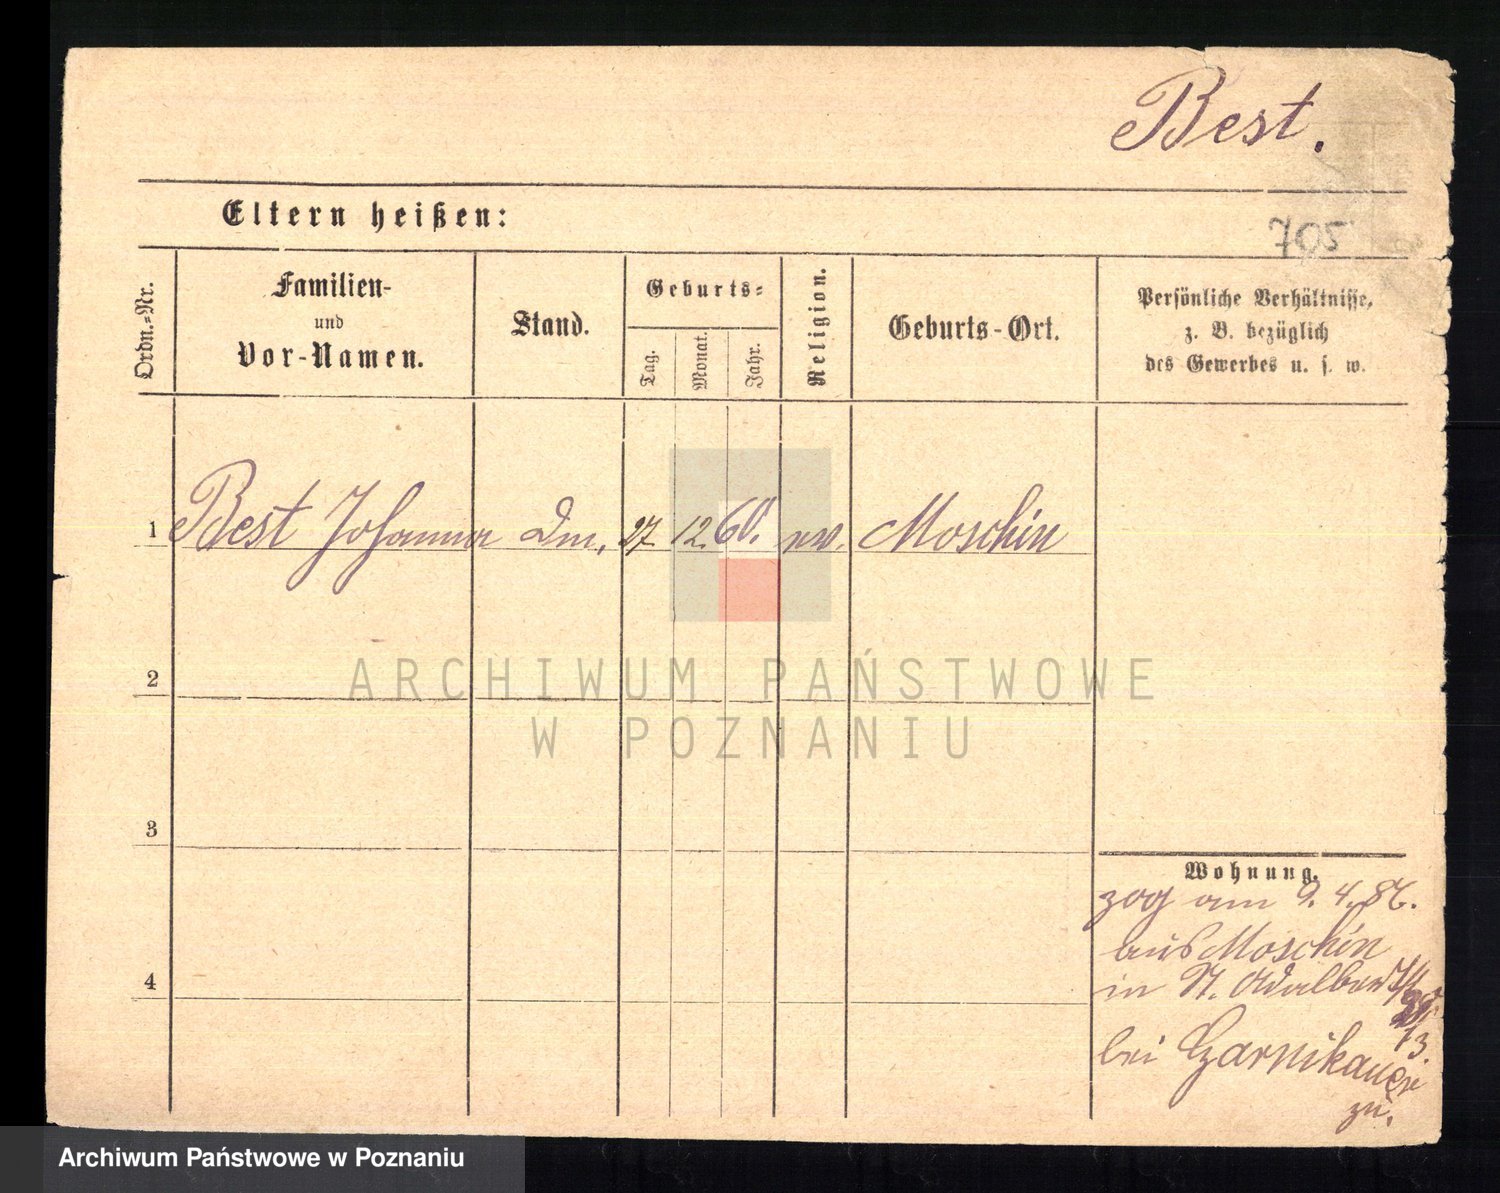 Best.
Eltern heißen:
705
Ordn.-Nr.
Familien-
und
Vor-Namen.
Stand.
Geburts-
Tag.
Monat.
Jahr.
Religion.
Geburts-Ort.
Persönliche Verhältnisse,
z. B. bezüglich
des Gewerbes u. s. w.
1 Best Johanna Dm. 27. 12. 60. ev. Moschin
2
ARCHIWUM PAŃSTWOWE
W POZNANIU
3
Wohnung.
zog am 9. 4. 87.
aus Moschin
4
in St. Adalbert
bei Czarnikauer
zu.
Archiwum Państwowe w Poznaniu